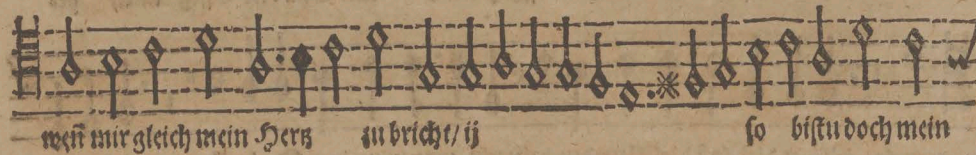 weñ mir gleich mein Hertz zu bricht/ ij so bistu doch mein